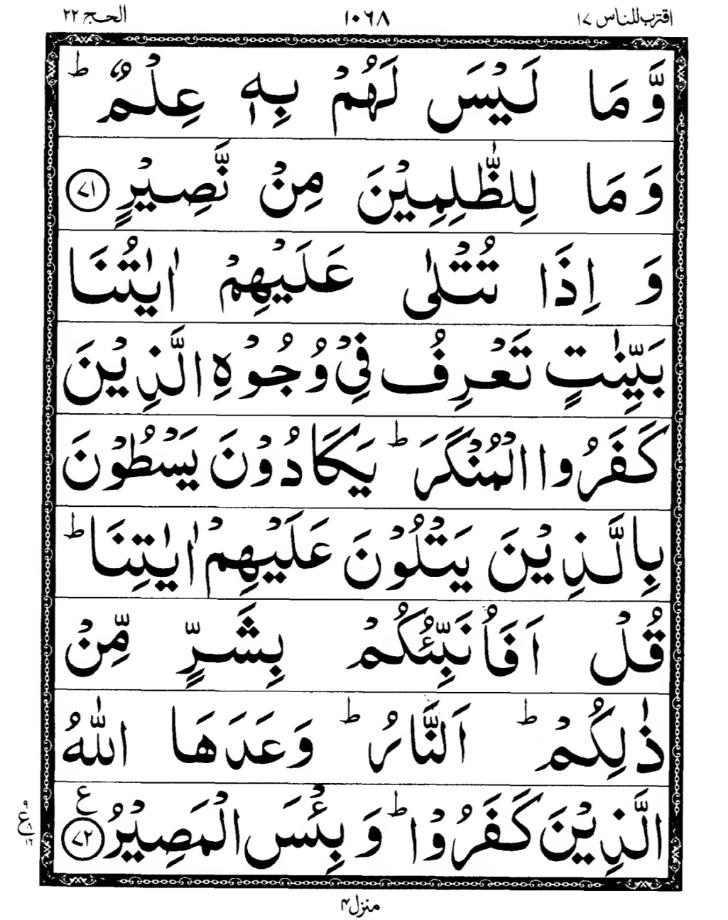 اقترب للناس ١٧ ١٠٦٨ الحج ٢٢
وَّ مَا لَيْسَ لَهُمْ بِهٖ عِلْمٌ ؕ
وَ مَا لِلظّٰلِمِيْنَ مِنْ نَّصِيْرٍ ﴿٧١﴾
وَ اِذَا تُتْلٰى عَلَيْهِمْ اٰيٰتُنَا
بَيِّنٰتٍ تَعْرِفُ فِيْ وُجُوْهِ الَّذِيْنَ
كَفَرُوا الْمُنْكَرَ ؕ يَكَادُوْنَ يَسْطُوْنَ
بِالَّذِيْنَ يَتْلُوْنَ عَلَيْهِمْ اٰيٰتِنَا ؕ
قُلْ اَفَاُنَبِّئُكُمْ بِشَرٍّ مِّنْ
ذٰلِكُمْ ؕ اَلنَّارُ ؕ وَعَدَهَا اللّٰهُ
الَّذِيْنَ كَفَرُوْا ؕ وَ بِئْسَ الْمَصِيْرُ ﴿٧٢﴾ ع
منزل ٤